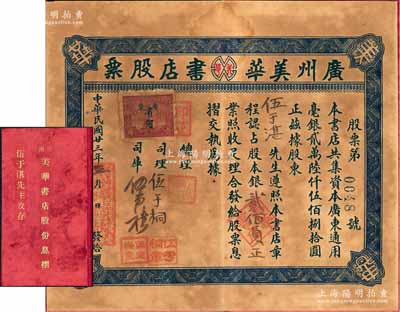 上海陽明拍賣
廣州美華書店股票
股票第0028號
本書店共集資本廣東通用
毫銀貳萬陸仟伍佰捌拾圓
正茲據股東
伍于湛先生遵照本書店章
程認占股本銀貳佰員正
業照收妥理合發給股票息
摺交執爲據
總理
司理 伍于桐
司庫
中華民國廿三年 月 日 發給
美華書店股份息摺
伍于湛先生收存
上海陽明拍賣